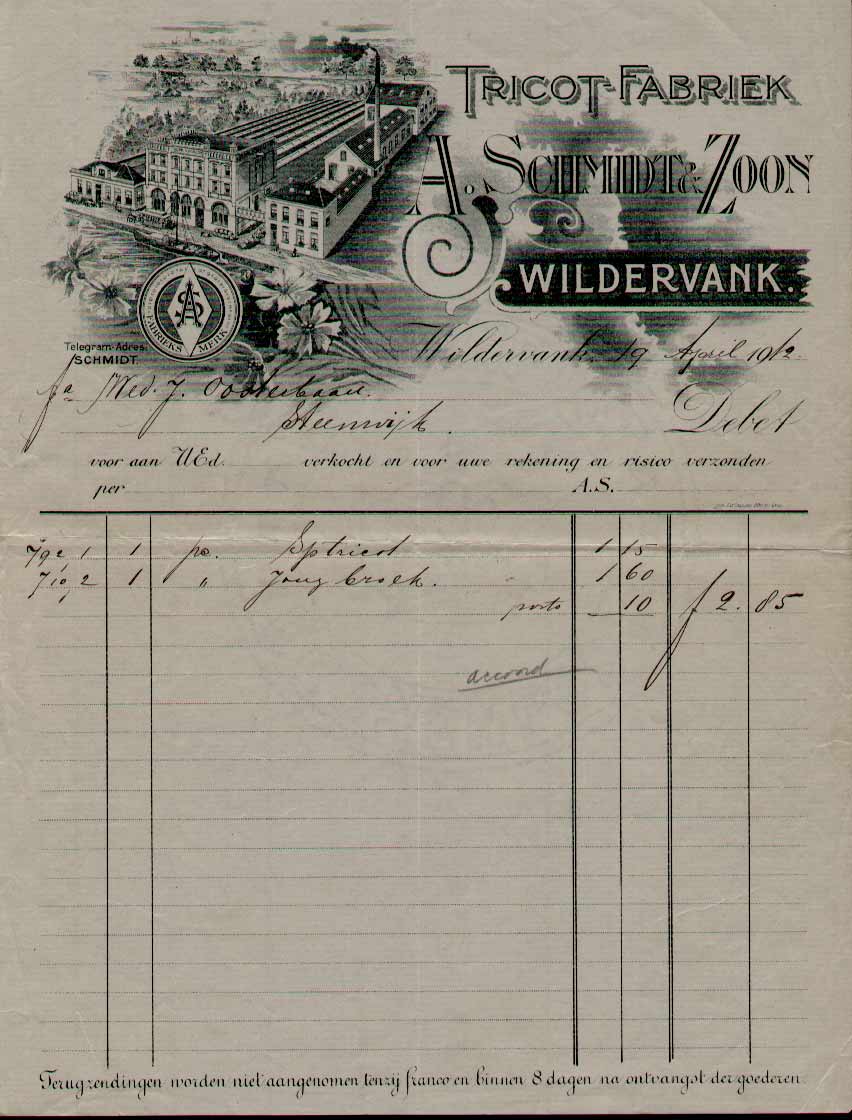 TRICOT-FABRIEK
A. SCHMIDT & ZOON
WILDERVANK.
FABRIEKS MERK
Telegram-Adres:
SCHMIDT.
Wildervank, 19 April 1912.
fa Wed. J. Oosterbaan.
Steenwijk.
Debet
voor aan UEd. verkocht en voor uwe rekening en risico verzonden
per A.S.
1 1 ps. tricot 1 15
2 1 " broek. " 1 60
porto 10 f 2. 85
accoord
Terugzendingen worden niet aangenomen tenzij franco en binnen 8 dagen na ontvangst der goederen.